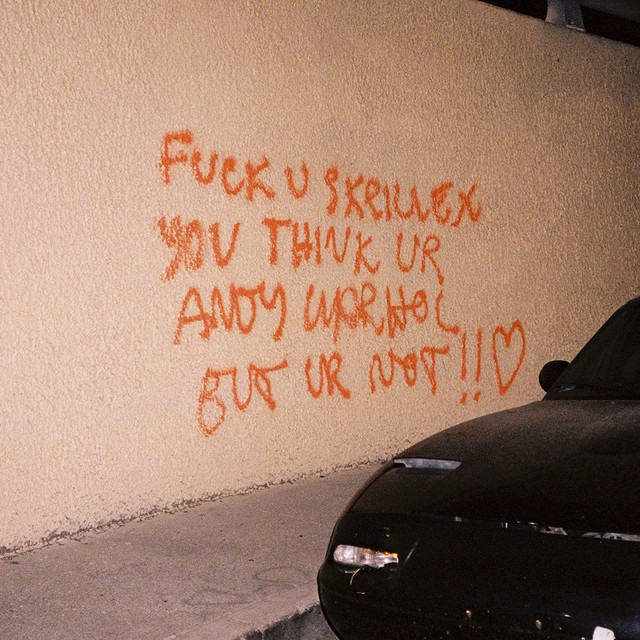 FUCK U SKRILLEX
YOU THINK UR
ANDY WARHOL
BUT UR NOT!!♡